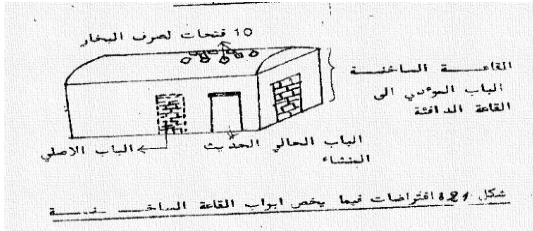 10 فتحات لصرف البخار
القاعة الساخنة
الباب المؤدي الى
القاعة الدافئة
الباب الحالي الحديث
البنشاء
الباب الاصلي
شكل 21 افتراضات فيما يخص ابواب القاعة الساخنة